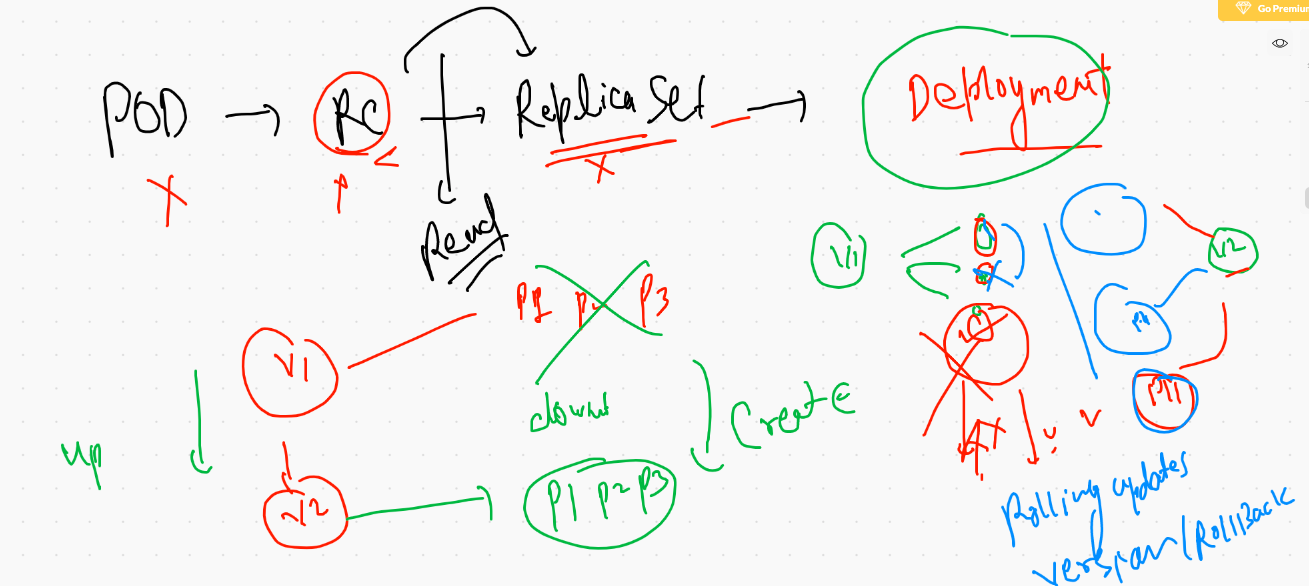 Go Premium
POD → RC → Replica Set → Deployment
X
X
Read
V1
V2
P1 P2 P3
V1
down
Create
up
P11
V2
P1 P2 P3
Rolling updates
version/RollBack